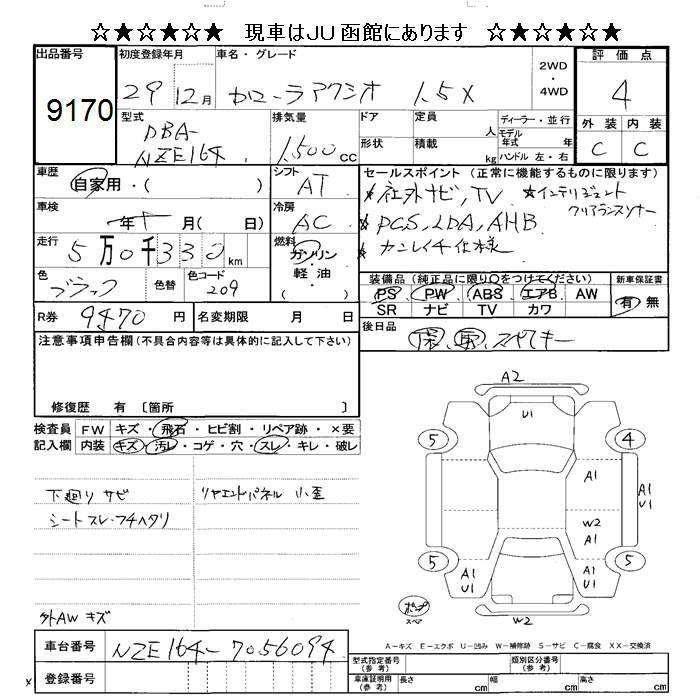 ☆★☆★☆★ 現車はJU函館にあります ☆★☆★☆★
出品番号
9170
初度登録年月
29 12月
車名・グレード
カローラアクシオ 1.5X
2WD
・
4WD
評価点
4
外装 内装
C C
型式
DBA-
NZE164
排気量
1,500cc
ドア
形状
定員
人
積載
kg
ディーラー・並行
モデル年式 年
ハンドル 左・右
車歴
自家用・( )
シフト
AT
車検
年 月( 日)
冷房
AC
走行
5万0千330km
燃料
ガソリン・
軽油・
( )
色
ブラック
色替
色コード
209
セールスポイント (正常に機能するものに限ります)
★社外ナビ,TV ★インテリジェント
クリアランスソナー
★PCS,LDA,AHB
★カンレイチ仕様
装備品(純正品に限り○をつけてください)
PS PW ABS エアB AW
SR ナビ TV カワ
新車保証書
有 無
R券
9470円
名変期限 月 日
後日品
保、取、スペアキー
注意事項申告欄(不具合内容等は具体的に記入して下さい)
修復歴 有 〔箇所 〕
検査員
記入欄
FW キズ・飛石・ヒビ割・リペア跡・×要
内装 キズ・汚レ・コゲ・穴・スレ・キレ・破レ
下廻り サビ
シートスレ・フチヘタリ
リヤエンドパネル 小歪
外AW キズ
A2
U1
5
4
A1
A1
U1
W2
A1
5
5
A1
U1
A1
U1
W2
スペア
A-キズ E-エクボ U-凹み W-補修跡 S-サビ C-腐食 XX-交換済
車台番号
NZE164-7056094
登録番号
x
型式指定番号
(参考)
類別区分番号
(参考)
車庫証明用
(参考)
長さ cm 幅 cm 高さ cm